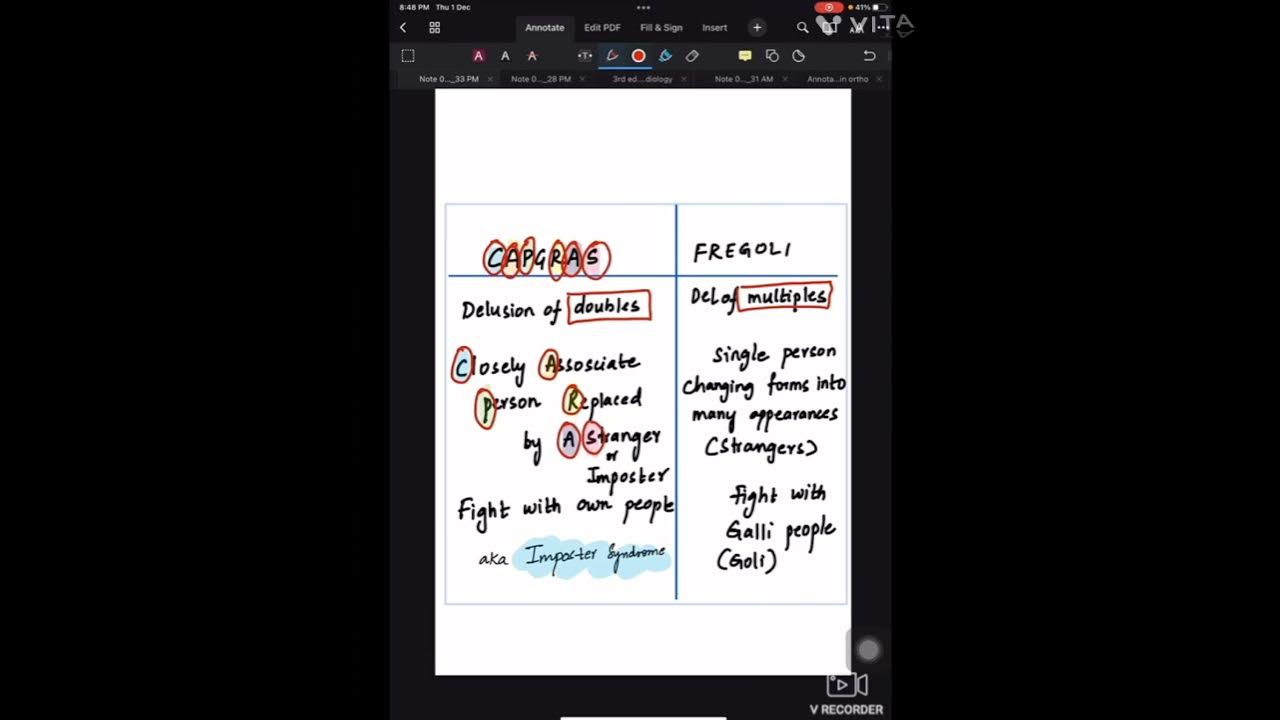 8:48 PM Thu 1 Dec
41%
VITA
Annotate Edit PDF Fill & Sign Insert
Note 0..._33 PM Note 0..._28 PM 3rd ed....diology Note 0..._31 AM Annota...in ortho
CAPGRAS
Delusion of doubles
Closely Assosciate
Person Replaced
by A Stranger
or
Imposter
Fight with own people
aka Imposter Syndrome
FREGOLI
Del of multiples
Single person
changing forms into
many appearances
(Strangers)
fight with
Galli people
(Goli)
V RECORDER